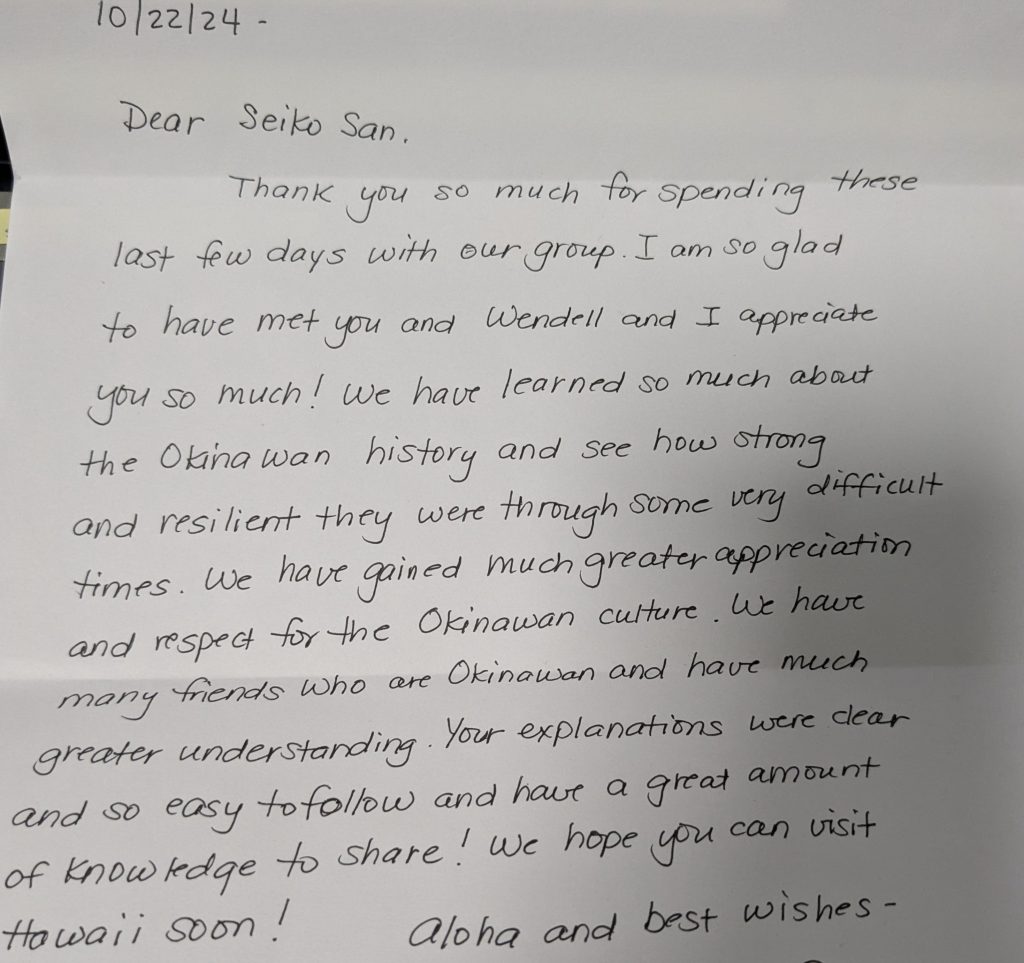 10/22/24 -
Dear Seiko San.
Thank you so much for spending these
last few days with our group. I am so glad
to have met you and Wendell and I appreciate
you so much! We have learned so much about
the Okinawan history and see how strong
and resilient they were through some very difficult
times. We have gained much greater appreciation
and respect for the Okinawan culture. We have
many friends who are Okinawan and have much
greater understanding. Your explanations were clear
and so easy to follow and have a great amount
of knowledge to share! We hope you can visit
Hawaii soon! Aloha and best wishes-